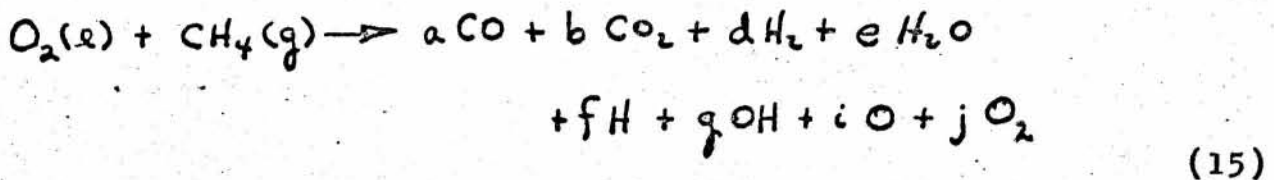 O₂(ℓ) + CH₄(g) → a CO + b CO₂ + d H₂ + e H₂O
+ f H + g OH + i O + j O₂
(15)